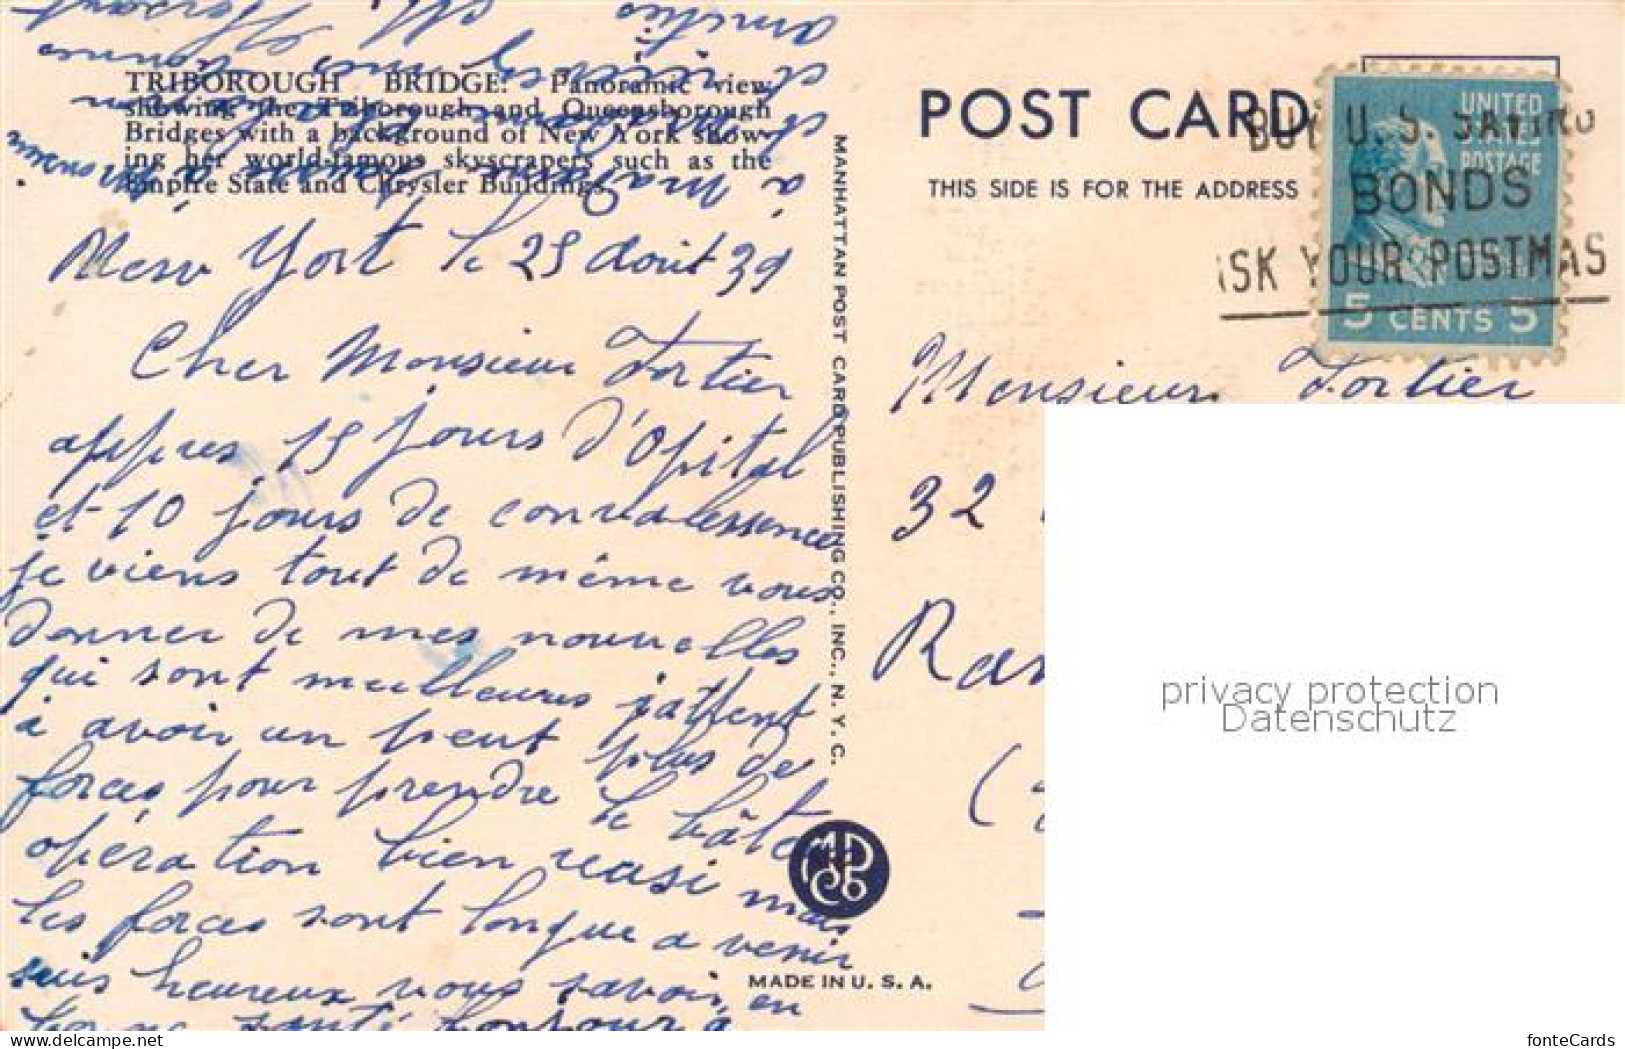 TRIBOROUGH BRIDGE: Panoramic view
showing the Triborough and Queensborough
Bridges with a background of New York show-
ing her world-famous skyscrapers such as the
Empire State and Chrysler Buildings.
New York le 25 Aout 39
Cher Monsieur Fortier
appres 15 jours d'Opital
et 10 jours de convalessence
je viens tout de même vous
donner de mes nouvelles
qui sont meilleures j'attent
à avoir un peut plus de
forces pour prendre le bâteau
opération bien reusi mais
les forces sont longue a venir
suis heureux vous savoir en
bonne santé bonjour à
MANHATTAN POST CARD PUBLISHING CO., INC., N. Y. C.
MADE IN U. S. A.
POST CARD
THIS SIDE IS FOR THE ADDRESS
UNITED
STATES
POSTAGE
5 CENTS 5
BUY U. S. SAVING
BONDS
ASK YOUR POSTMAS
Monsieur Fortier
32
Ran
privacy protection
Datenschutz
delcampe.net
fonteCards